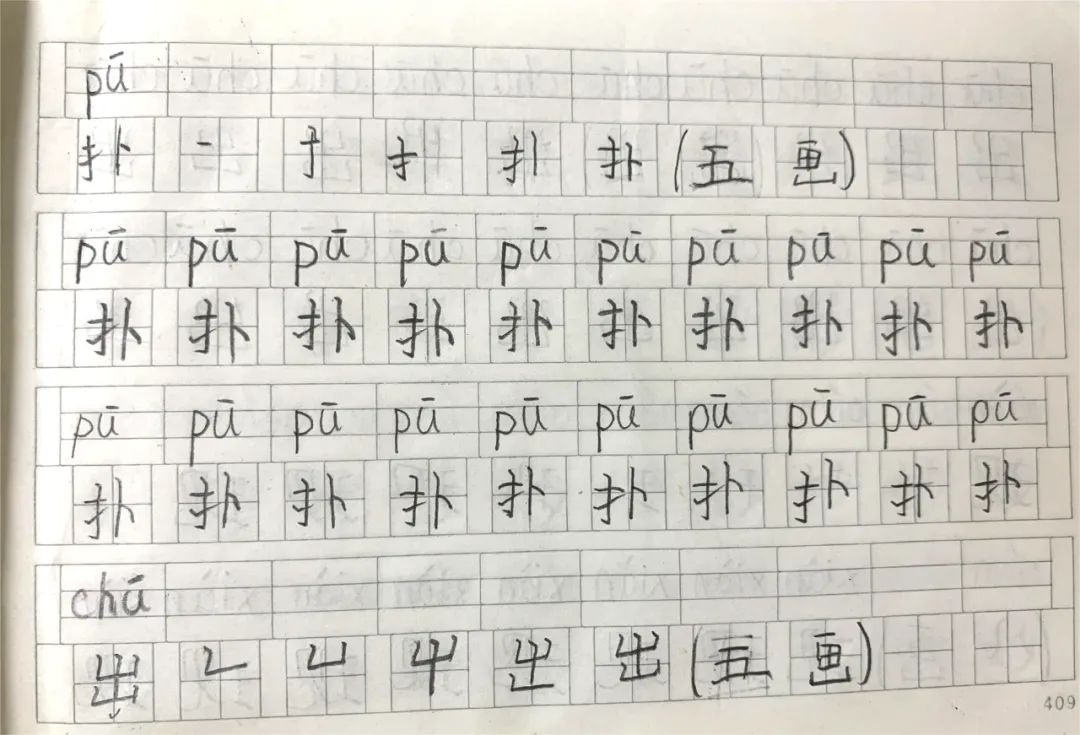 pū
扑 一 扌 扌 扑 扑 (五 画)
pū pū pū pū pū pū pū pū pū pū
扑 扑 扑 扑 扑 扑 扑 扑 扑 扑
pū pū pū pū pū pū pū pū pū pū
扑 扑 扑 扑 扑 扑 扑 扑 扑 扑
chū
出 ㄥ 凵 屮 出 出 (五 画)
409